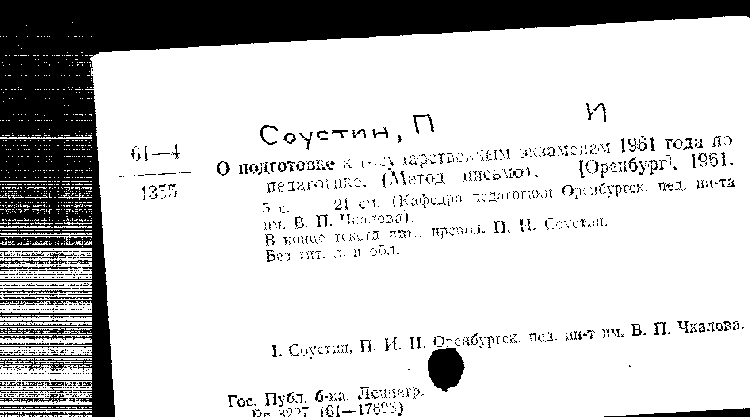 Соустин, П И
61—4
О подготовке к государственным экзаменам 1961 года по
педагогике. (Метод. письмо). [Оренбург], 1961.
5 с. 21 см. (Кафедра педагогики Оренбургск. пед. ин-та
им. В. П. Чкалова).
В конце текста препод. П. И. Соустин.
Без тит. л. и обл.
I. Соустин, П. И. II. Оренбургск. пед. ин-т им. В. П. Чкалова.
Гос. Публ. б-ка. Ленингр.